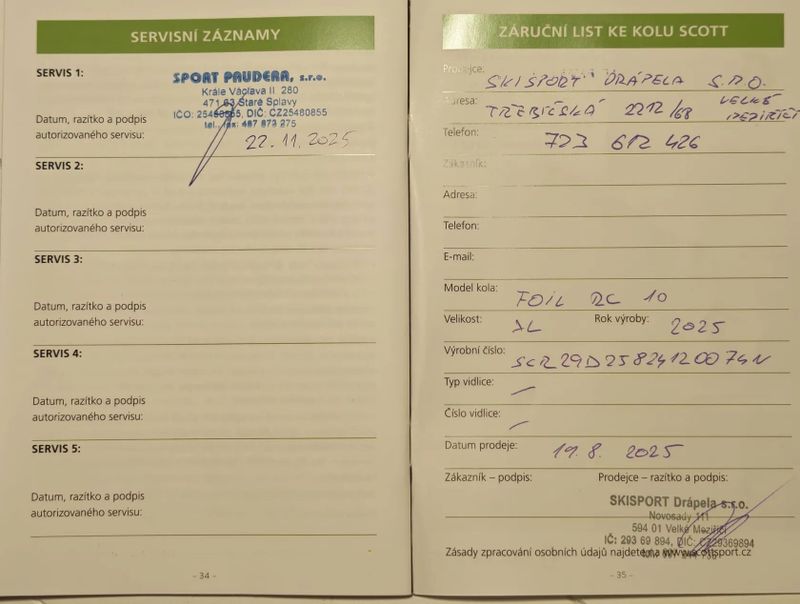 SERVISNÍ ZÁZNAMY
SERVIS 1:
SPORT PAUDERA, s.r.o.
Krále Václava II 280
471 63 Staré Splavy
IČO: 25480855, DIČ: CZ25480855
tel., fax: 487 873 275
Datum, razítko a podpis
autorizovaného servisu:
22.11.2025
SERVIS 2:
Datum, razítko a podpis
autorizovaného servisu:
SERVIS 3:
Datum, razítko a podpis
autorizovaného servisu:
SERVIS 4:
Datum, razítko a podpis
autorizovaného servisu:
SERVIS 5:
Datum, razítko a podpis
autorizovaného servisu:
- 34 -
ZÁRUČNÍ LIST KE KOLU SCOTT
Prodejce: SKISPORT DRÁPELA S.R.O.
Adresa: TŘEBÍČSKÁ 2212/68 VELKÉ MEZIŘÍČÍ
Telefon: 723 612 426
Zákazník:
Adresa:
Telefon:
E-mail:
Model kola: FOIL RC 10
Velikost: XL Rok výroby: 2025
Výrobní číslo: SCR29D25824120074N
Typ vidlice: —
Číslo vidlice: —
Datum prodeje: 19.8. 2025
Zákazník – podpis: Prodejce – razítko a podpis:
SKISPORT Drápela s.r.o.
Novosady 111
594 01 Velké Meziříčí
IČ: 293 69 894, DIČ: CZ29369894
Zásady zpracování osobních údajů najdete na www.scottsport.cz
- 35 -